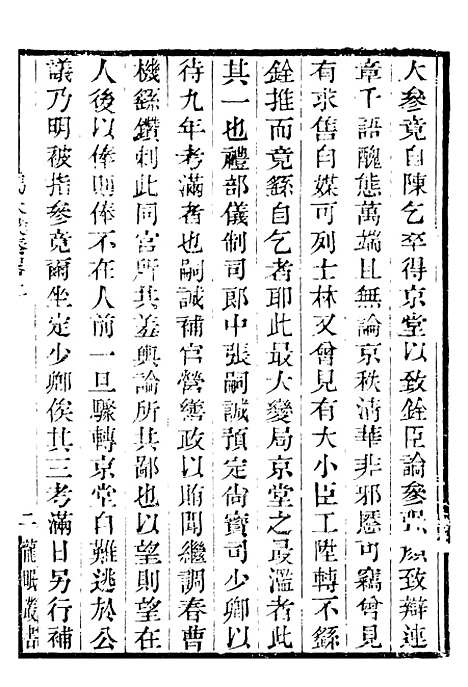 大參竟自陳乞卒得京堂以致銓臣論參𠔏致辯連
章千語醜態萬端且無論京秩清華非邪慝可竊曾見
有求售自媒可列士林又曾見有大小臣工陞轉不繇
銓推而竟繇自乞者耶此最大變局京堂之最濫者此
其一也禮部儀制司郎中張嗣誠預定尚寶司少卿以
待九年考滿者也嗣誠補官營鑽政以賄聞繼調春曹
機繇鑽刺此同官所共羞輿論所共鄙也以望則望在
人後以俸則俸不在人前一旦驟轉京堂自難逃於公
議乃明被指參竟爾坐定少卿俟其三考滿日另行補
二 龍眠叢書